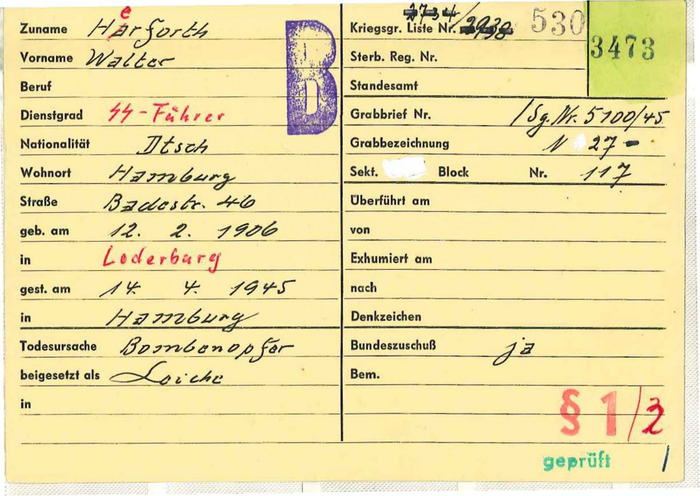 Zuname Harforth e
Vorname Walter
Beruf
Dienstgrad SS-Führer
Nationalität Dtsch
Wohnort Hamburg
Straße Badestr. 46
geb. am 12. 2. 1906
in Loderburg
gest. am 14. 4. 1945
in Hamburg
Todesursache Bombenopfer
beigesetzt als Leiche
in
B
Kriegsgr. Liste Nr. 2734/ 2938 530
3473
Sterb. Reg. Nr.
Standesamt
Grabbrief Nr. /Sg. Nr. 5100/45
Grabbezeichnung N 27-
Sekt. Block Nr. 117
Überführt am
von
Exhumiert am
nach
Denkzeichen
Bundeszuschuß ja
Bem.
§ 1/2
geprüft /